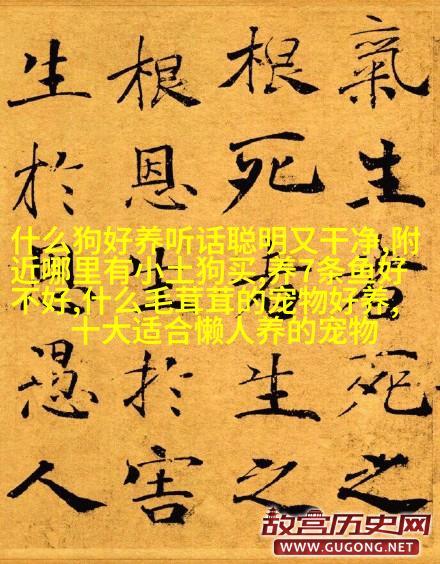 氣生者死之
根死者生之
根恩生於害
生於恩愚人
什么狗好养听话聪明又干净,附
近哪里有小土狗买,养7条鱼好
不好,什么毛茸茸的宠物好养,
十大适合懒人养的宠物
故宫历史网
WWW.GUGONG.NET